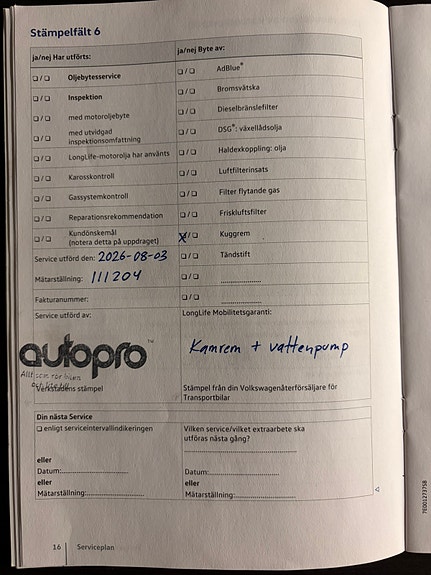 Stämpelfält 6
ja/nej Har utförts:
ja/nej Byte av:
Oljebytesservice
AdBlue®
Inspektion
Bromsvätska
med motoroljebyte
Dieselbränslefilter
med utvidgad
inspektionsomfattning
DSG®: växellådsolja
LongLife-motorolja har använts
Haldexkoppling: olja
Karosskontroll
Luftfilterinsats
Gassystemkontroll
Filter flytande gas
Reparationsrekommendation
Friskluftsfilter
Kundönskemål
(notera detta på uppdraget)
X Kuggrem
Service utförd den: 2026-08-03
Tändstift
Mätarställning: 111204
Fakturanummer:
Service utförd av:
LongLife Mobilitetsgaranti:
autopro™
Kamrem + vattenpump
Allt som rör bilen
Verkstadens stämpel
Stämpel från din Volkswagenåterförsäljare för
Transportbilar
Din nästa Service
enligt serviceintervallindikeringen
Vilken service/vilket extraarbete ska
utföras nästa gång?
eller
Datum:
eller
Mätarställning:
eller
Datum:
eller
Mätarställning:
16 Serviceplan
7E0012737SB